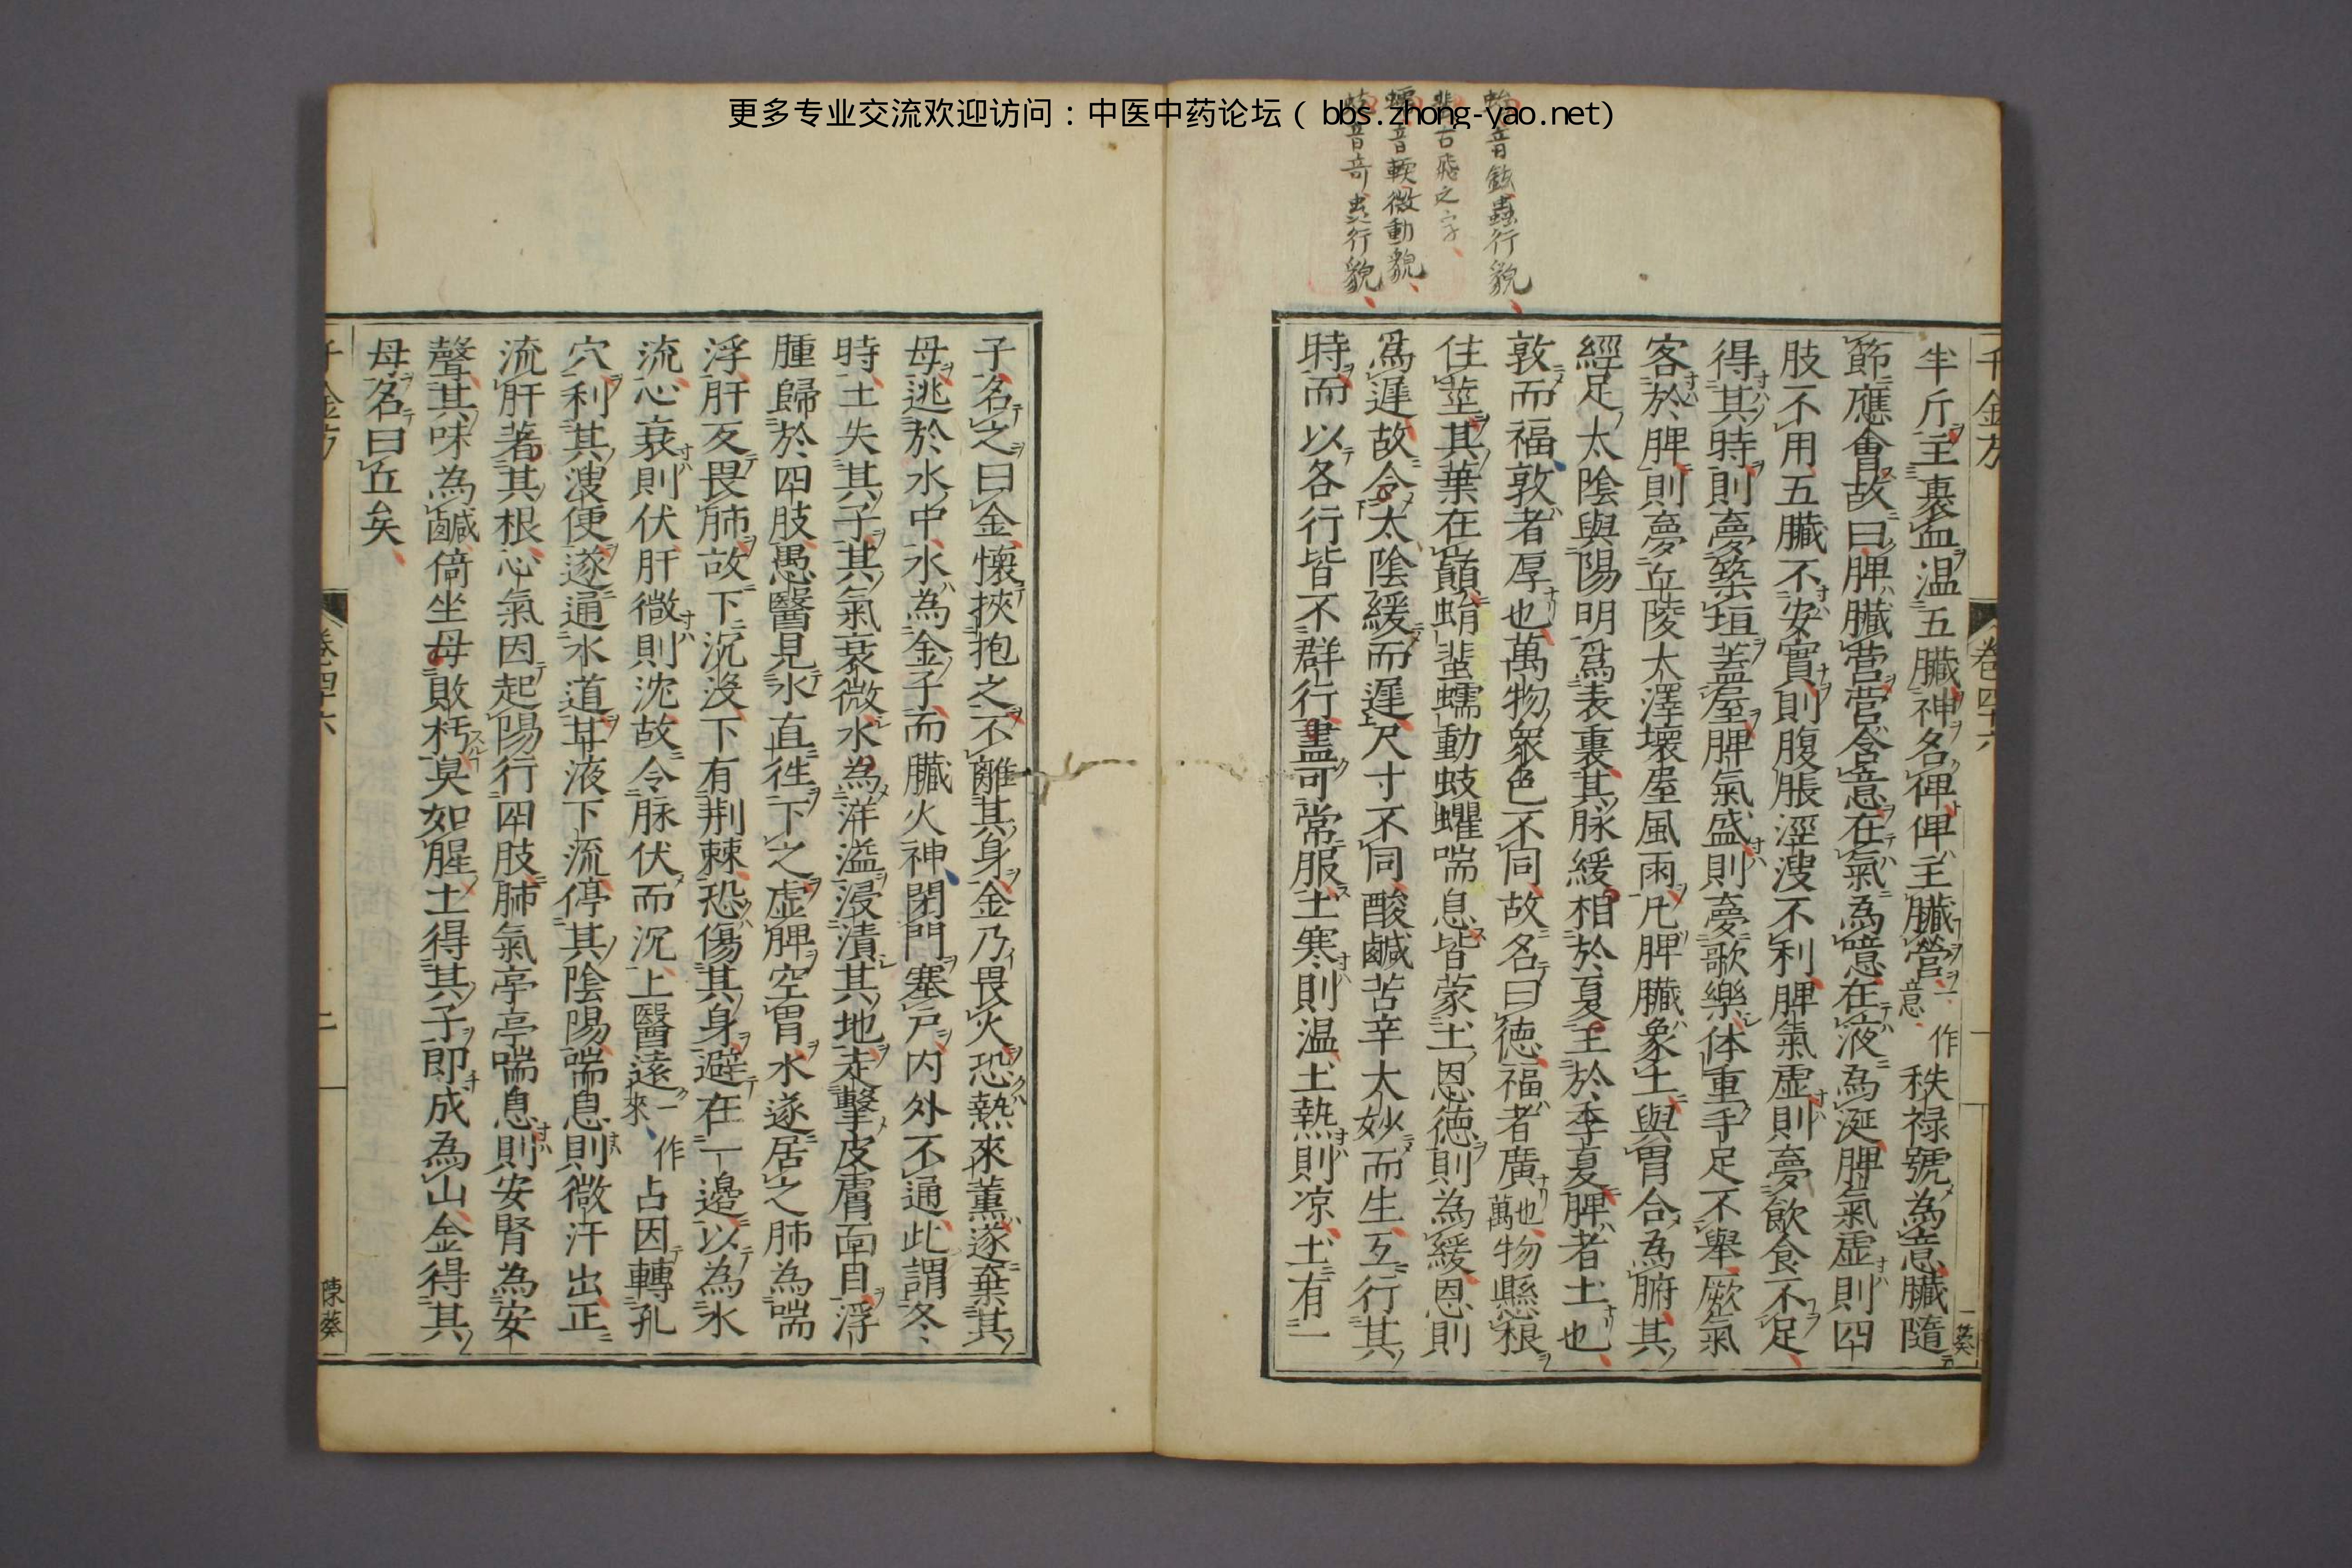 更多专业交流欢迎访问：中医中药论坛（ bbs.zhong-yao.net）
音 蟲行貌
古飛之字
蠕音軟微動貌
音奇 行貌
千金方
卷四十六
半斤主裹血温五臟神名俾俾主臟營一作意秩禄號為意臟隨
節應會故曰脾臓营营舍意在氣為噫在液為涎脾氣虚則四
肢不用五臓不安實則腹脹涇溲不利脾氣虚則夢飲食不足
得其時則夢築垣蓋屋脾氣盛則夢歌樂体重手足不舉厥氣
客於脾則夢丘陵大澤壊屋風雨凡脾臓象土與胃合為腑其
經足太陰與陽明爲表裏其脉緩相於夏王於季夏脾者土也
敦而福敦者厚也萬物衆色不同故名曰德福者廣也萬物懸根
住莖其葉在巔蜎蜚蠕動蚑蠷喘息皆蒙土恩徳則為緩恩則
爲遲故令太陰緩而遲尺寸不同酸鹹苦辛大妙而生互行其
時而以各行皆不群行盡可常服土寒則温土熱則凉土有一
子名之曰金懷挾抱之不離其身金乃畏火恐熱來薫遂棄其
母逃於水中水為金子而臟火神閉門塞戸内外不通此謂冬
時土失其子其氣衰微水為洋溢浸漬其地走擊皮膚面目浮
腫歸於四肢愚醫見水直徃下之虚脾空胃水遂居之肺為喘
浮肝反畏肺故下沉没下有荆棘恐傷其身避在一邊以為水
流心衰則伏肝微則沈故令脉伏而沉上醫遠一作來占因轉孔
穴利其溲便遂通水道其液下流停其陰陽喘息則微汗出正
流肝著其根心氣因起陽行四肢肺氣亭亭喘息則安腎為安
聲其味為鹹倚坐母敗朽臭如腥土得其子即成為山金得其
母名曰丘矣
千金方
卷四十六
二
陳葵